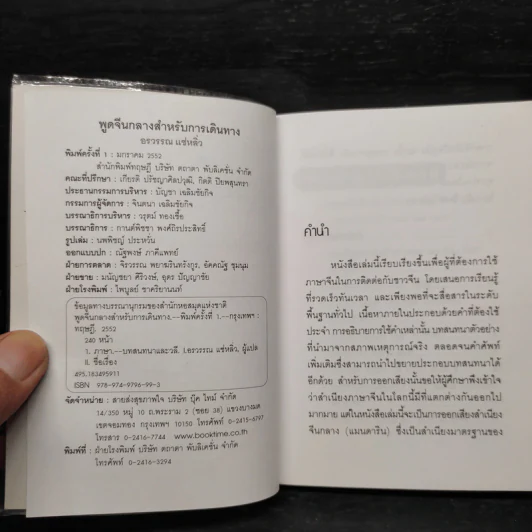 พูดจีนกลางสำหรับการเดินทาง
อรวรรณ แซ่หลิ่ว
พิมพ์ครั้งที่ 1 : มกราคม 2552
สำนักพิมพ์ทฤษฎี บริษัท ตถาตา พับลิเคชั่น จำกัด
คณะที่ปรึกษา : เกียรติ ปรัชญาศิลปวุฒิ, กิตติ ปิยพสุนทรา
ประธานกรรมการบริหาร : บัญชา เฉลิมชัยกิจ
กรรมการผู้จัดการ : จินตนา เฉลิมชัยกิจ
บรรณาธิการบริหาร : วรุตม์ ทองเชื้อ
บรรณาธิการ : กานต์พิชชา พงศ์ถิรประสิทธิ์
รูปเล่ม : นพพิชญ์ ประหวั่น
ออกแบบปก : ณัฐพงษ์ ภาคีแพทย์
ฝ่ายการตลาด : จิรวรรณ พยาฆรินทรังกูร, อัคคณัฐ ชุมนุม
ฝ่ายขาย : มนัญชยา ศิริวงษ์, อุดร ปัญญาชัย
ฝ่ายโรงพิมพ์ : ไพบูลย์ ชาคริยานนท์
ข้อมูลทางบรรณานุกรมของสำนักหอสมุดแห่งชาติ
พูดจีนกลางสำหรับการเดินทาง.--พิมพ์ครั้งที่ 1.--กรุงเทพฯ :
ทฤษฎี, 2552
240 หน้า
1. ภาษา.--บทสนทนาและวลี. I.อรวรรณ แซ่หลิ่ว, ผู้แปล
II. ชื่อเรื่อง
495.183495911
ISBN 978-974-9796-99-3
จัดจำหน่าย : สายส่งสุขภาพใจ บริษัท บุ๊ค ไทม์ จำกัด
14/350 หมู่ 10 ถ.พระราม 2 (ซอย 38) แขวงบางมด
เขตจอมทอง กรุงเทพฯ 10150 โทรศัพท์ 0-2415-6797
โทรสาร 0-2416-7744 www.booktime.co.th
พิมพ์ที่ : ฝ่ายโรงพิมพ์ บริษัท ตถาตา พับลิเคชั่น จำกัด
โทรศัพท์ 0-2416-3294
คำนำ
หนังสือเล่มนี้เรียบเรียงขึ้นเพื่อผู้ที่ต้องการใช้
ภาษาจีนในการติดต่อกับชาวจีน โดยเสนอการเรียนรู้
ที่รวดเร็วทันเวลา และเพียงพอที่จะสื่อสารในระดับ
พื้นฐานทั่วไป เนื้อหาภายในประกอบด้วยคำที่ต้องใช้
ประจำ การอธิบายการใช้คำเหล่านั้น บทสนทนาตัวอย่าง
ที่นำมาจากสภาพเหตุการณ์จริง ตลอดจนคำศัพท์
เพิ่มเติมซึ่งสามารถนำไปขยายประกอบบทสนทนาได้
อีกด้วย สำหรับการออกเสียงนั้นขอให้ผู้ศึกษาพึงเข้าใจ
ว่าสำเนียงภาษาจีนในโลกนี้มีที่แตกต่างกันออกไป
มากมาย แต่ในหนังสือเล่มนี้จะเป็นการออกเสียงสำเนียง
จีนกลาง (แมนดาริน) ซึ่งเป็นสำเนียงมาตรฐานของ